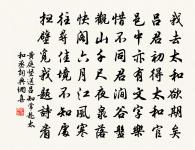 我去太和欲期歲
呂君初得太和官
邑中亦有文字樂
惜不同君澗谷盤
觀山千尺夜泉落
快閣六月江風寒
往尋佳境不知處
掃壁覓我題詩看
黃庭堅送呂知常赴太
和丞詞典網集